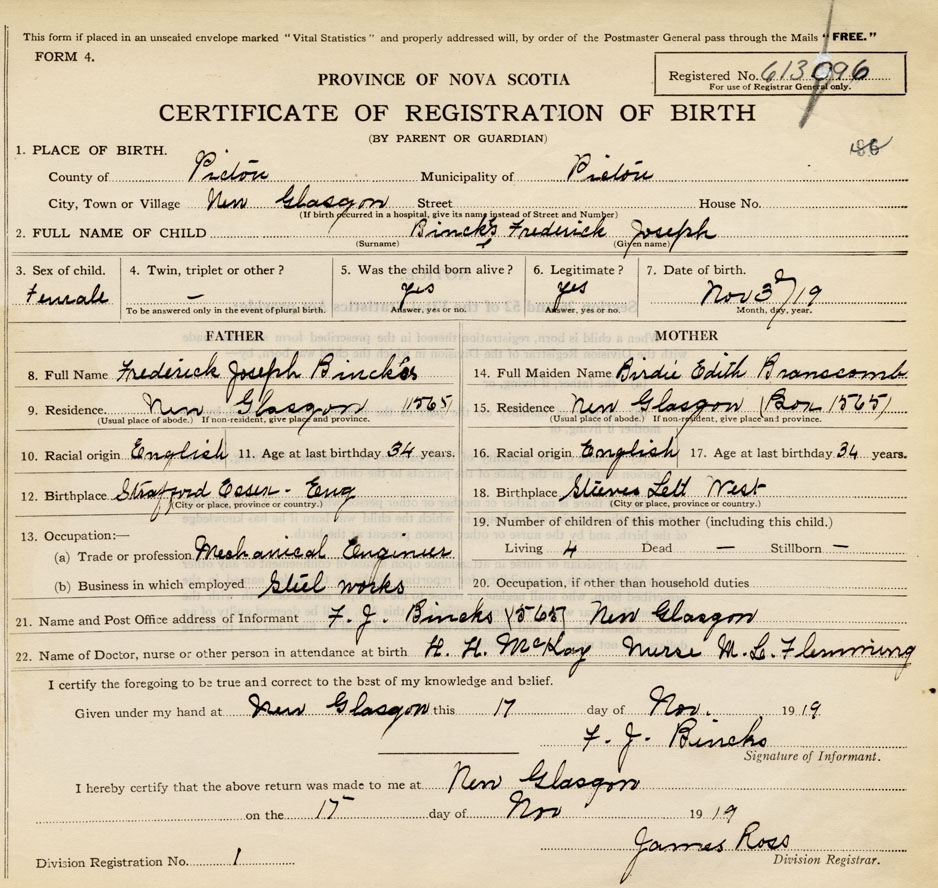 This form if placed in an unsealed envelope marked "Vital Statistics" and properly addressed will, by order of the Postmaster General pass through the Mails "FREE."
FORM 4.
Registered No. 613096
For use of Registrar General only.
PROVINCE OF NOVA SCOTIA
CERTIFICATE OF REGISTRATION OF BIRTH
(BY PARENT OR GUARDIAN)
1. PLACE OF BIRTH.
County of Pictou Municipality of Pictou
City, Town or Village New Glasgow Street House No.
(If birth occurred in a hospital, give its name instead of Street and Number)
2. FULL NAME OF CHILD Bincks Frederick Joseph
(Surname) (Given name)
3. Sex of child. 4. Twin, triplet or other? 5. Was the child born alive? 6. Legitimate? 7. Date of birth.
Female — yes yes Nov 3d/19
To be answered only in the event of plural birth. Answer, yes or no. Answer, yes or no. Month, day, year.
FATHER MOTHER
8. Full Name Frederick Joseph Bincks 14. Full Maiden Name Birdie Edith Branscomb
9. Residence. New Glasgow 1565 15. Residence New Glasgow (Box 1565)
(Usual place of abode.) If non-resident, give place and province. (Usual place of abode.) If non-resident, give place and province.
10. Racial origin English 11. Age at last birthday 34 years. 16. Racial origin English 17. Age at last birthday 34 years.
12. Birthplace Strafford Essex - Eng 18. Birthplace Stieves Lett West
(City or place, province or country.) (City or place, province or country.)
13. Occupation:— 19. Number of children of this mother (including this child.)
(a) Trade or profession Mechanical Engineer Living 4 Dead — Stillborn —
(b) Business in which employed Steel works 20. Occupation, if other than household duties
21. Name and Post Office address of Informant F. J. Bincks (565) New Glasgow
22. Name of Doctor, nurse or other person in attendance at birth H. H. McKay Nurse M. L. Flemming
I certify the foregoing to be true and correct to the best of my knowledge and belief.
Given under my hand at New Glasgow this 17 day of Nov. 1919
F. J. Bincks
Signature of Informant.
I hereby certify that the above return was made to me at New Glasgow
on the 17 day of Nov 1919
James Ross
Division Registration No. 1 Division Registrar.